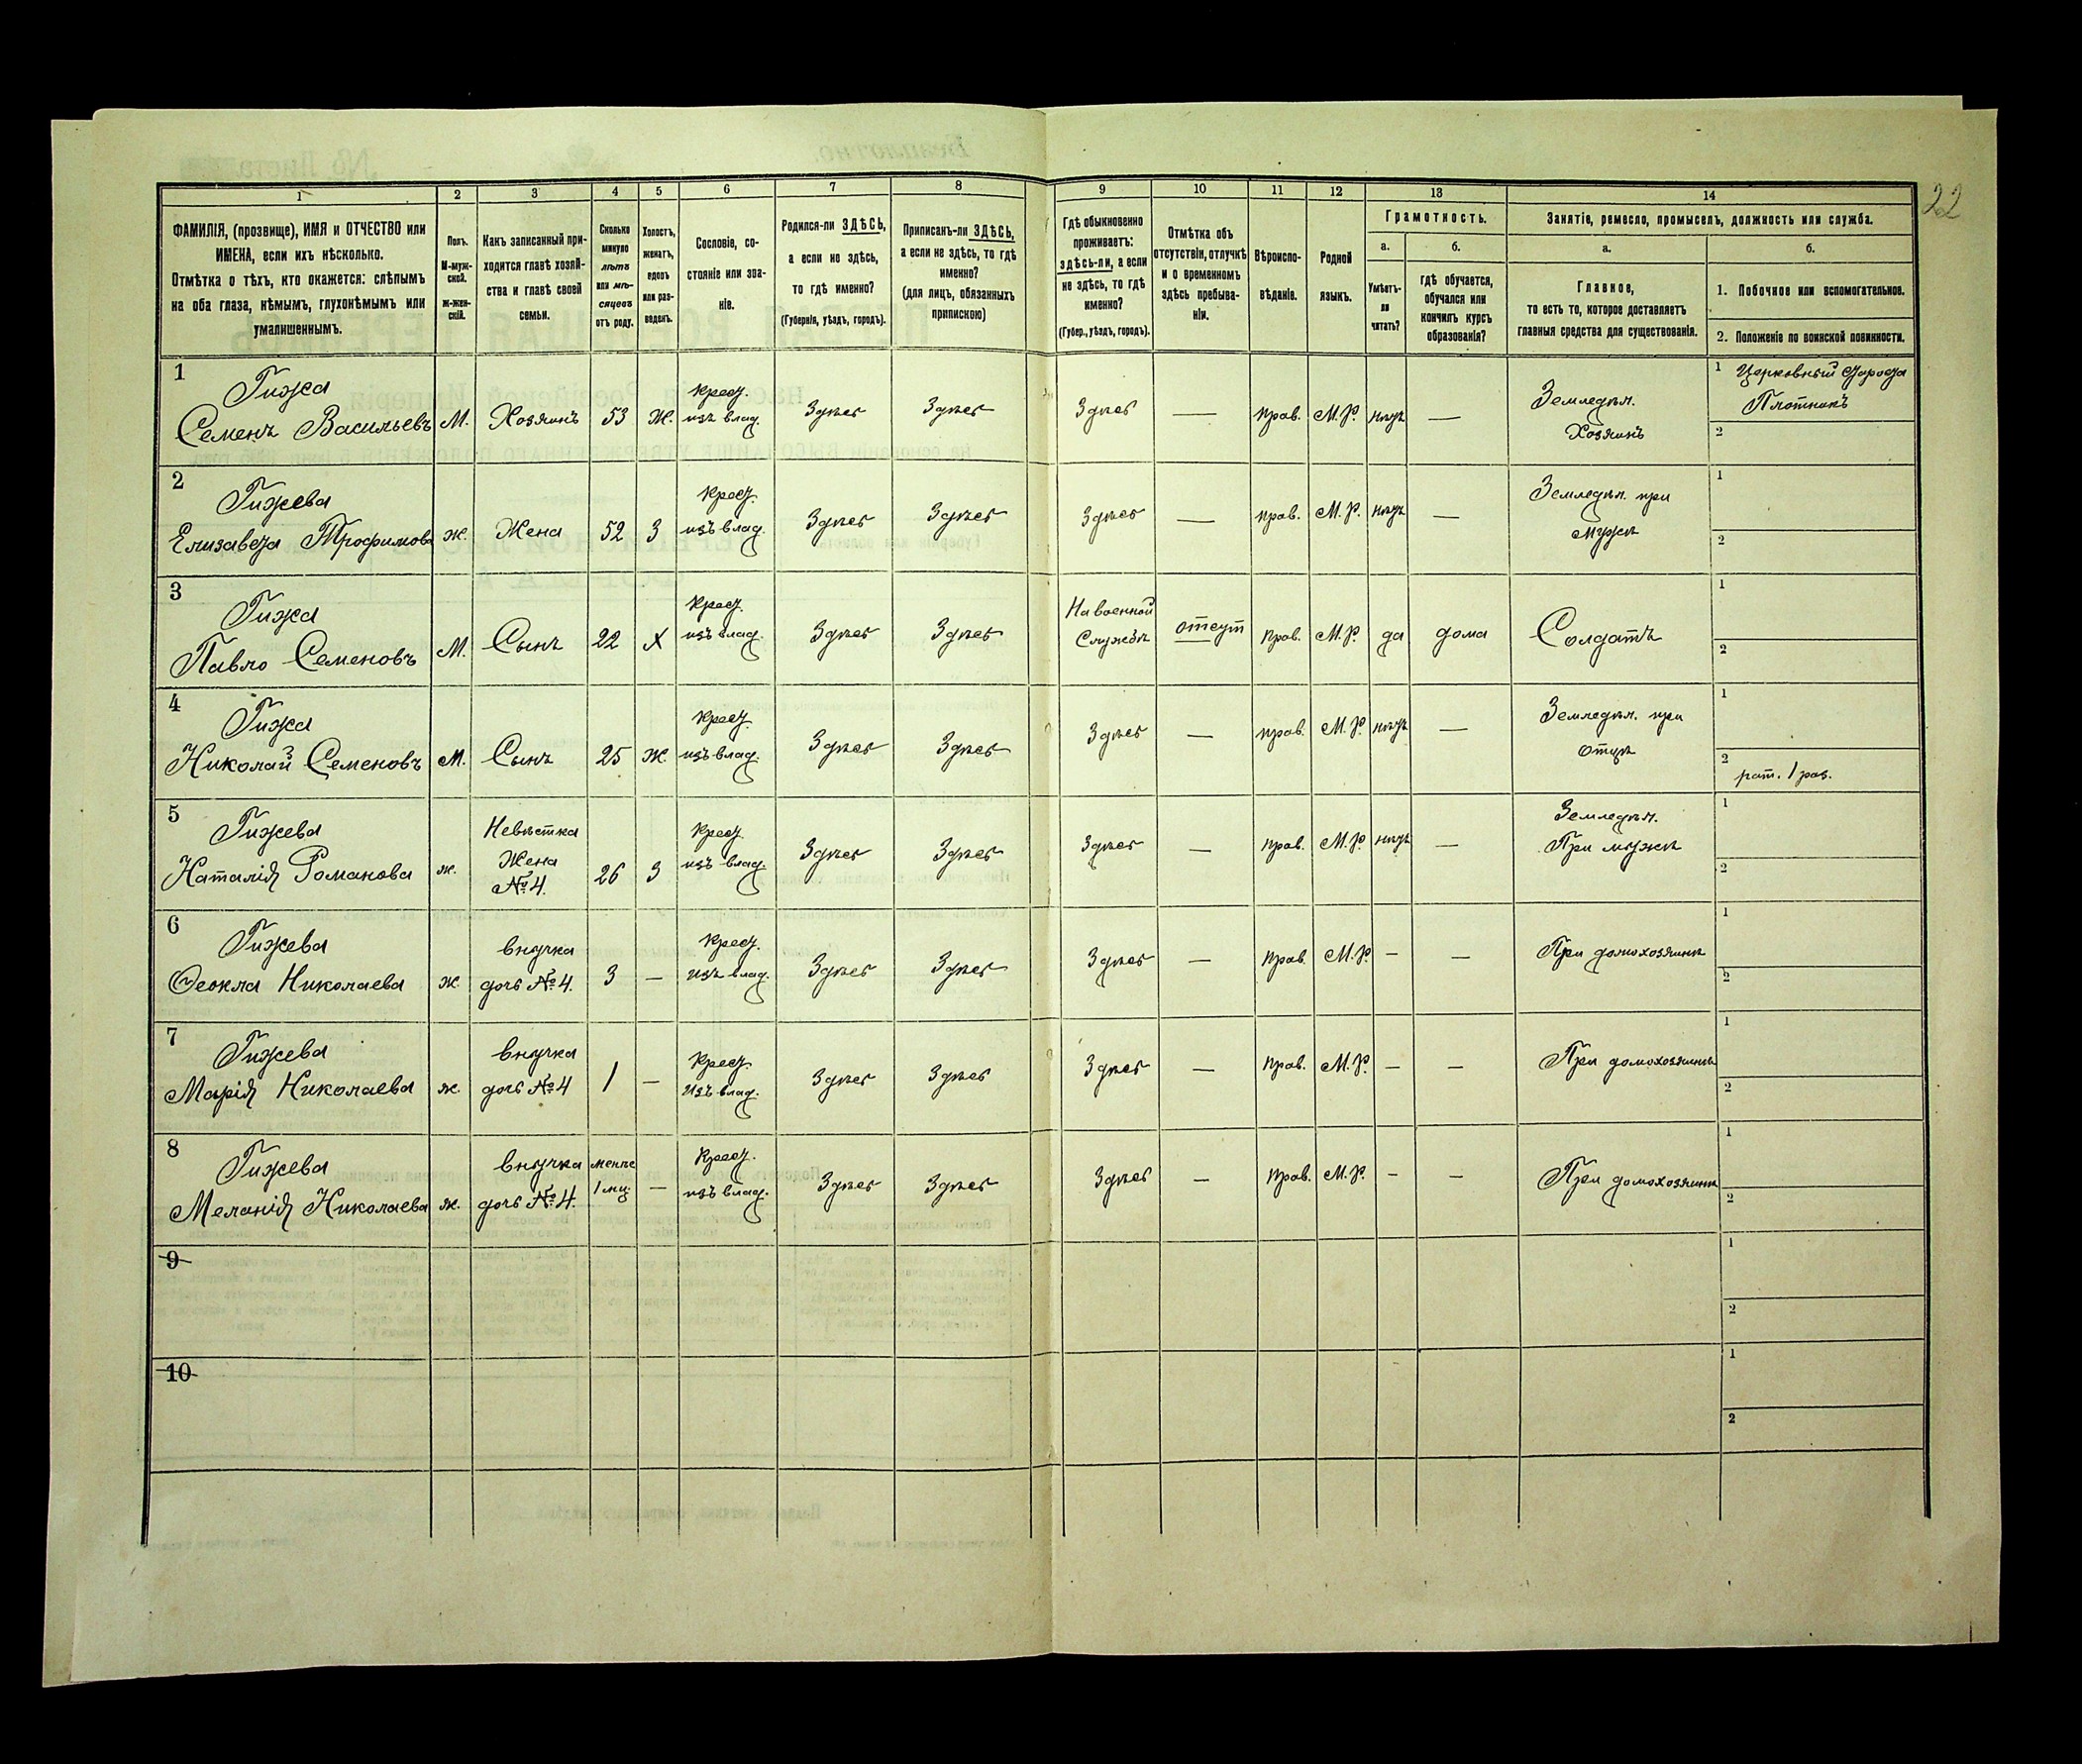 22
1 2 3 4 5 6 7 8 9 10 11 12 13 14
ФАМИЛІЯ, (прозвище), ИМЯ и ОТЧЕСТВО или
ИМЕНА, если ихъ нѣсколько.
Отмѣтка о тѣхъ, кто окажется: слѣпымъ
на оба глаза, нѣмымъ, глухонѣмымъ или
умалишеннымъ.
Полъ.
М-муж-
ской.
Ж-жен-
скій.
Какъ записанный при-
ходится главѣ хозяй-
ства и главѣ своей
семьи.
Сколько
минуло
лѣтъ
или мѣ-
сяцевъ
отъ роду.
Холостъ,
женатъ,
вдовъ
или раз-
веденъ.
Сословіе, со-
стояніе или зва-
ніе.
Родился-ли ЗДѢСЬ,
а если не здѣсь,
то гдѣ именно?
(Губернія, уѣздъ, городъ).
Приписанъ-ли ЗДѢСЬ,
а если не здѣсь, то гдѣ
именно?
(для лицъ, обязанныхъ
припискою)
Гдѣ обыкновенно
проживаетъ:
здѣсь-ли, а если
не здѣсь, то гдѣ
именно?
(Губер., уѣздъ, городъ).
Отмѣтка объ
отсутствіи, отлучкѣ
и о временномъ
здѣсь пребыва-
ніи.
Вѣроиспо-
вѣданіе.
Родной
языкъ.
Грамотность.
а.
Умѣетъ-
ли
читать?
б.
гдѣ обучается,
обучался или
кончилъ курсъ
образованія?
Занятіе, ремесло, промыселъ, должность или служба.
а.
Главное,
то есть то, которое доставляетъ
главныя средства для существованія.
б.
1. Побочное или вспомогательное.
2. Положеніе по воинской повинности.
1 Гижа крест. Земледѣл. 1 Церковный Староста
Семенъ Васильевъ М. Хозяинъ 53 Ж. изъ влад. Здѣсь Здѣсь Здѣсь — прав. М.Р. нѣтъ — Хозяинъ Плотникъ
2
2 Гижева крест. Земледѣл. при 1
Елизавета Трофимова ж. Жена 52 З изъ влад. Здѣсь Здѣсь Здѣсь — прав. М.Р. нѣтъ — мужѣ 2
3 Гижа крест. На военной 1
Павло Семеновъ М. Сынъ 22 Х изъ влад. Здѣсь Здѣсь Службѣ отсут прав. М.Р. да дома Солдатъ 2
4 Гижа крест. Земледѣл. при 1
Николай Семеновъ М. Сынъ 25 Ж. изъ влад. Здѣсь Здѣсь Здѣсь — прав. М.Р. нѣтъ — отцѣ 2 рат. 1 раз.
5 Гижева Невѣстка крест. Земледѣл. 1
Наталія Романова ж. Жена №4. 26 З изъ влад. Здѣсь Здѣсь Здѣсь — прав. М.Р. нѣтъ — При мужѣ 2
6 Гижева внучка крест. 1
Ѳеокла Николаева ж. дочь №4. 3 — изъ влад. Здѣсь Здѣсь Здѣсь — прав. М.Р. — — При домохозяинѣ 2
7 Гижева внучка крест. 1
Марія Николаева ж. дочь №4 1 — изъ влад. Здѣсь Здѣсь Здѣсь — прав. М.Р. — — При домохозяинѣ 2
8 Гижева внучка менѣе крест. 1
Меланія Николаева ж. дочь №4. 1 мц. — изъ влад. Здѣсь Здѣсь Здѣсь — прав. М.Р. — — При домохозяинѣ 2
9 1
2
10 1
2